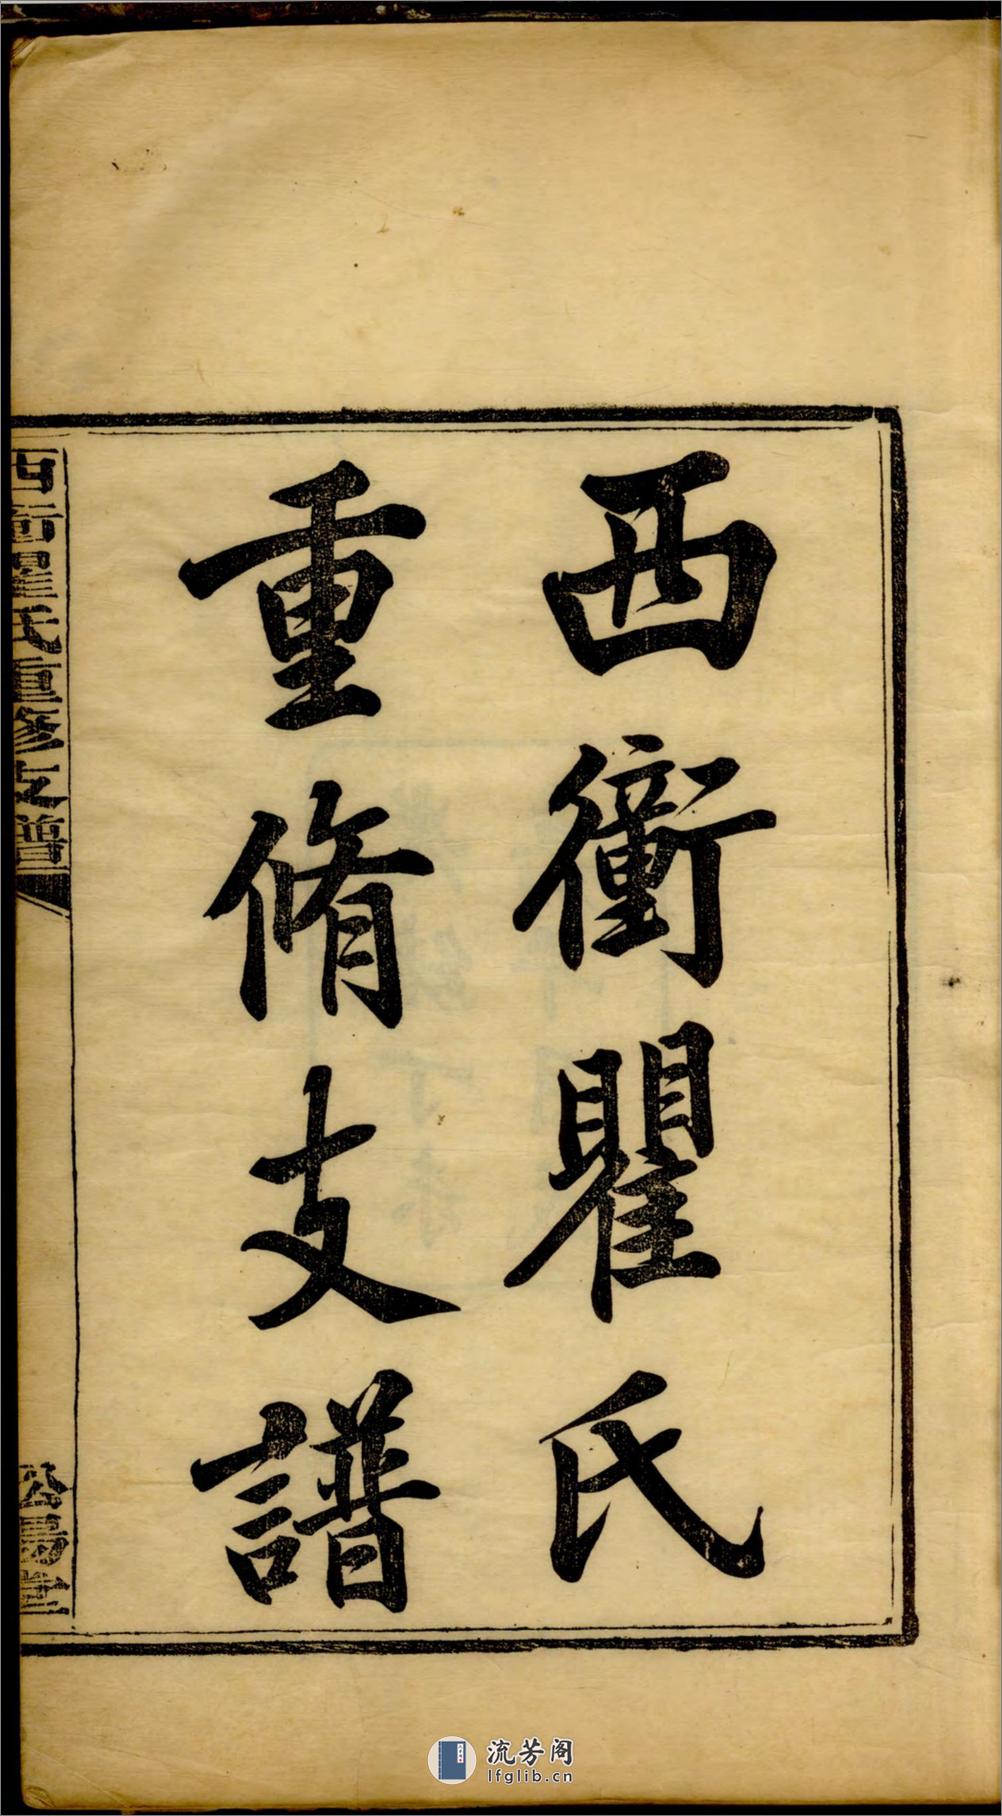 西衝瞿氏
重脩支譜
西衝瞿氏重修支譜
松陽堂
流芳阁
lfglib.cn